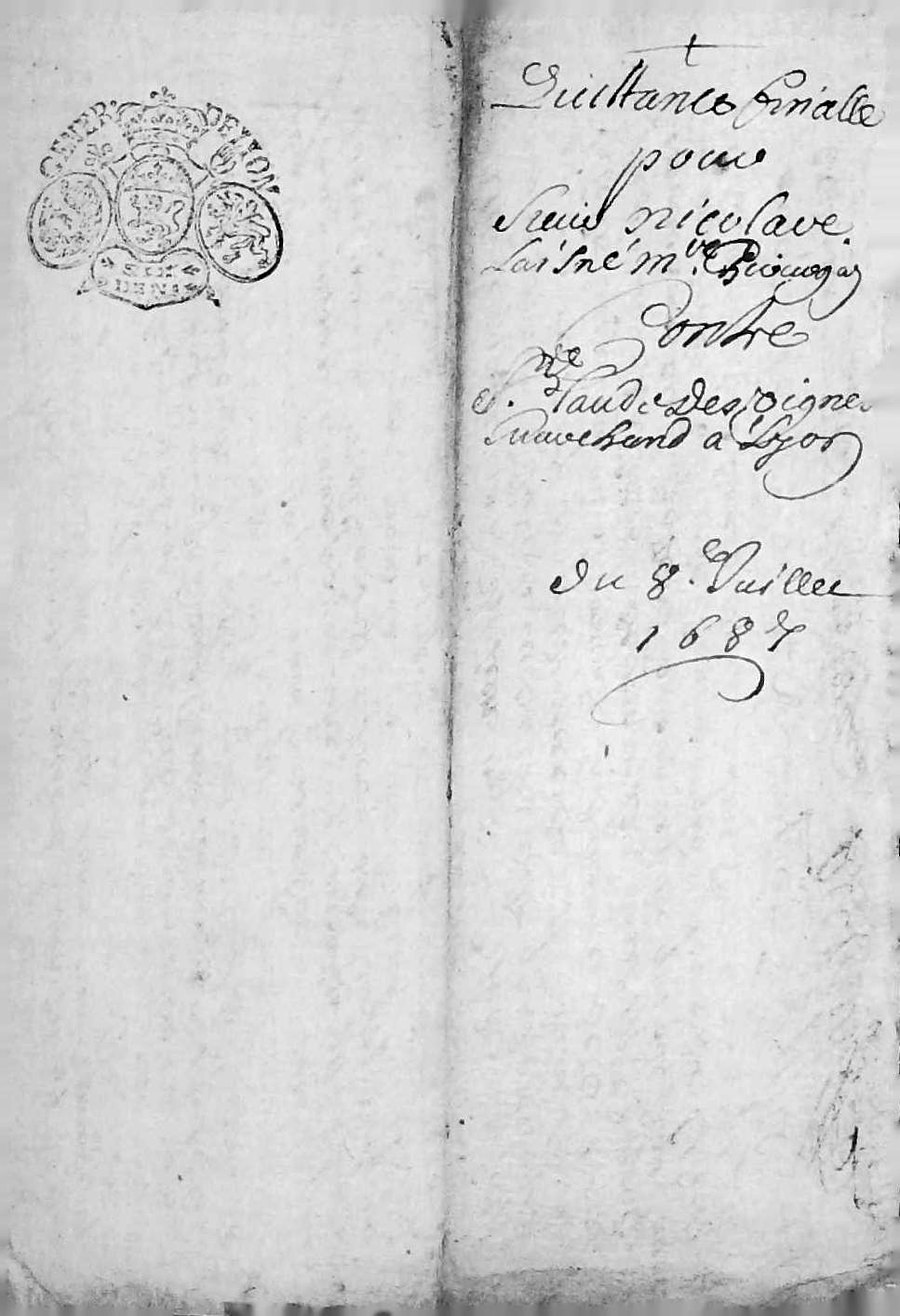 GENER DE LYON
SIX
DEN
Quittance finalle
pour
sieur nicolas
Laisné m.
Contre
S. Claude Desvignes
marchand a Lyon
du 8.e Juillet
1687